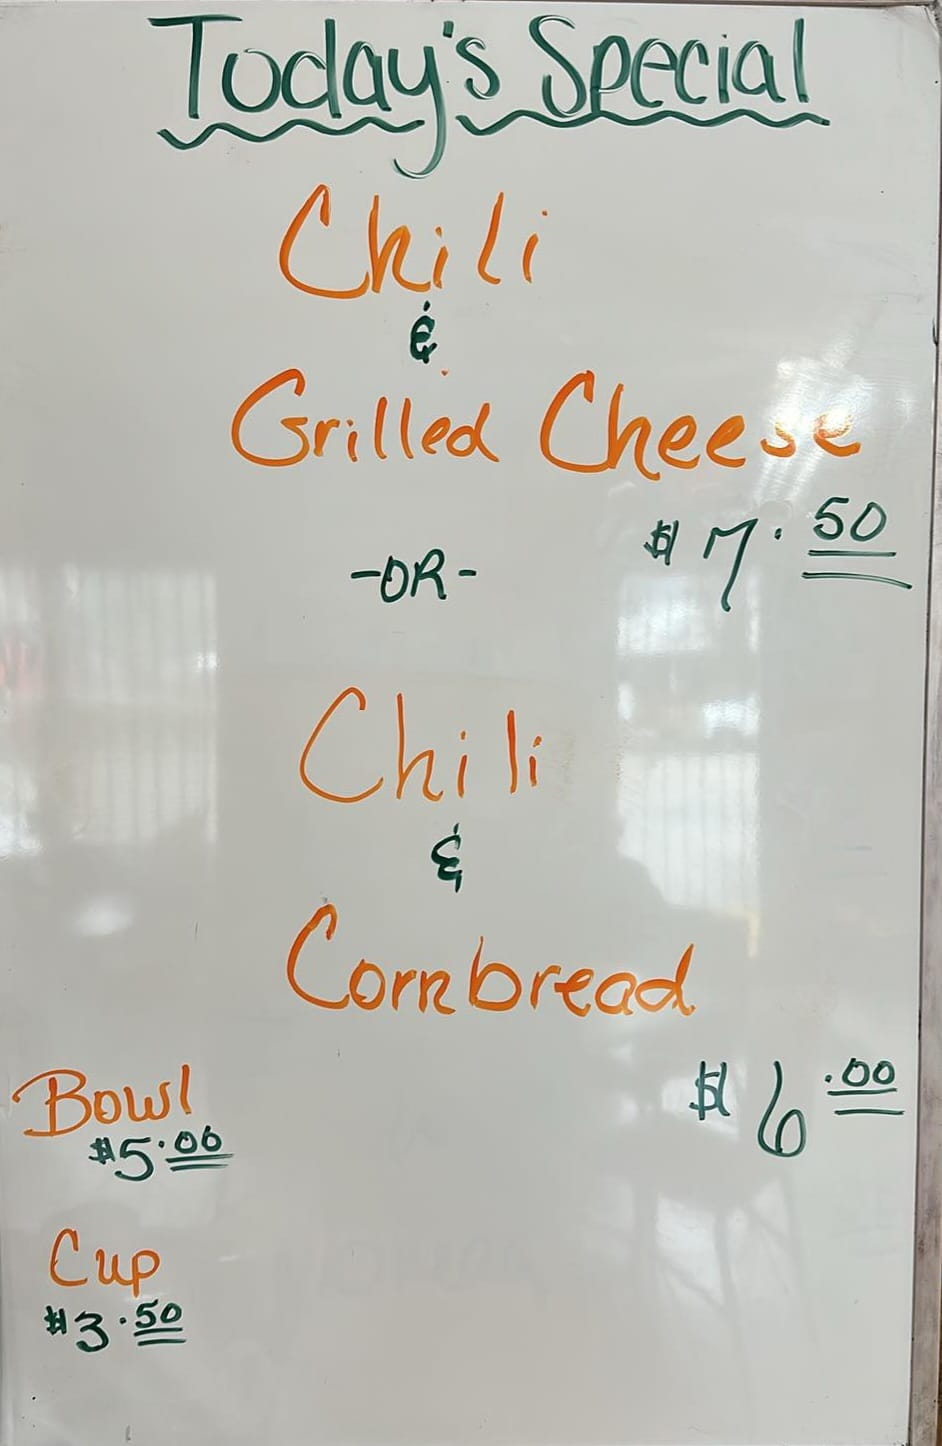 Today's Special
Chili
&
Grilled Cheese
$7.50
-OR-
Chili
&
Cornbread
$6.00
Bowl
$5.00
Cup
$3.50